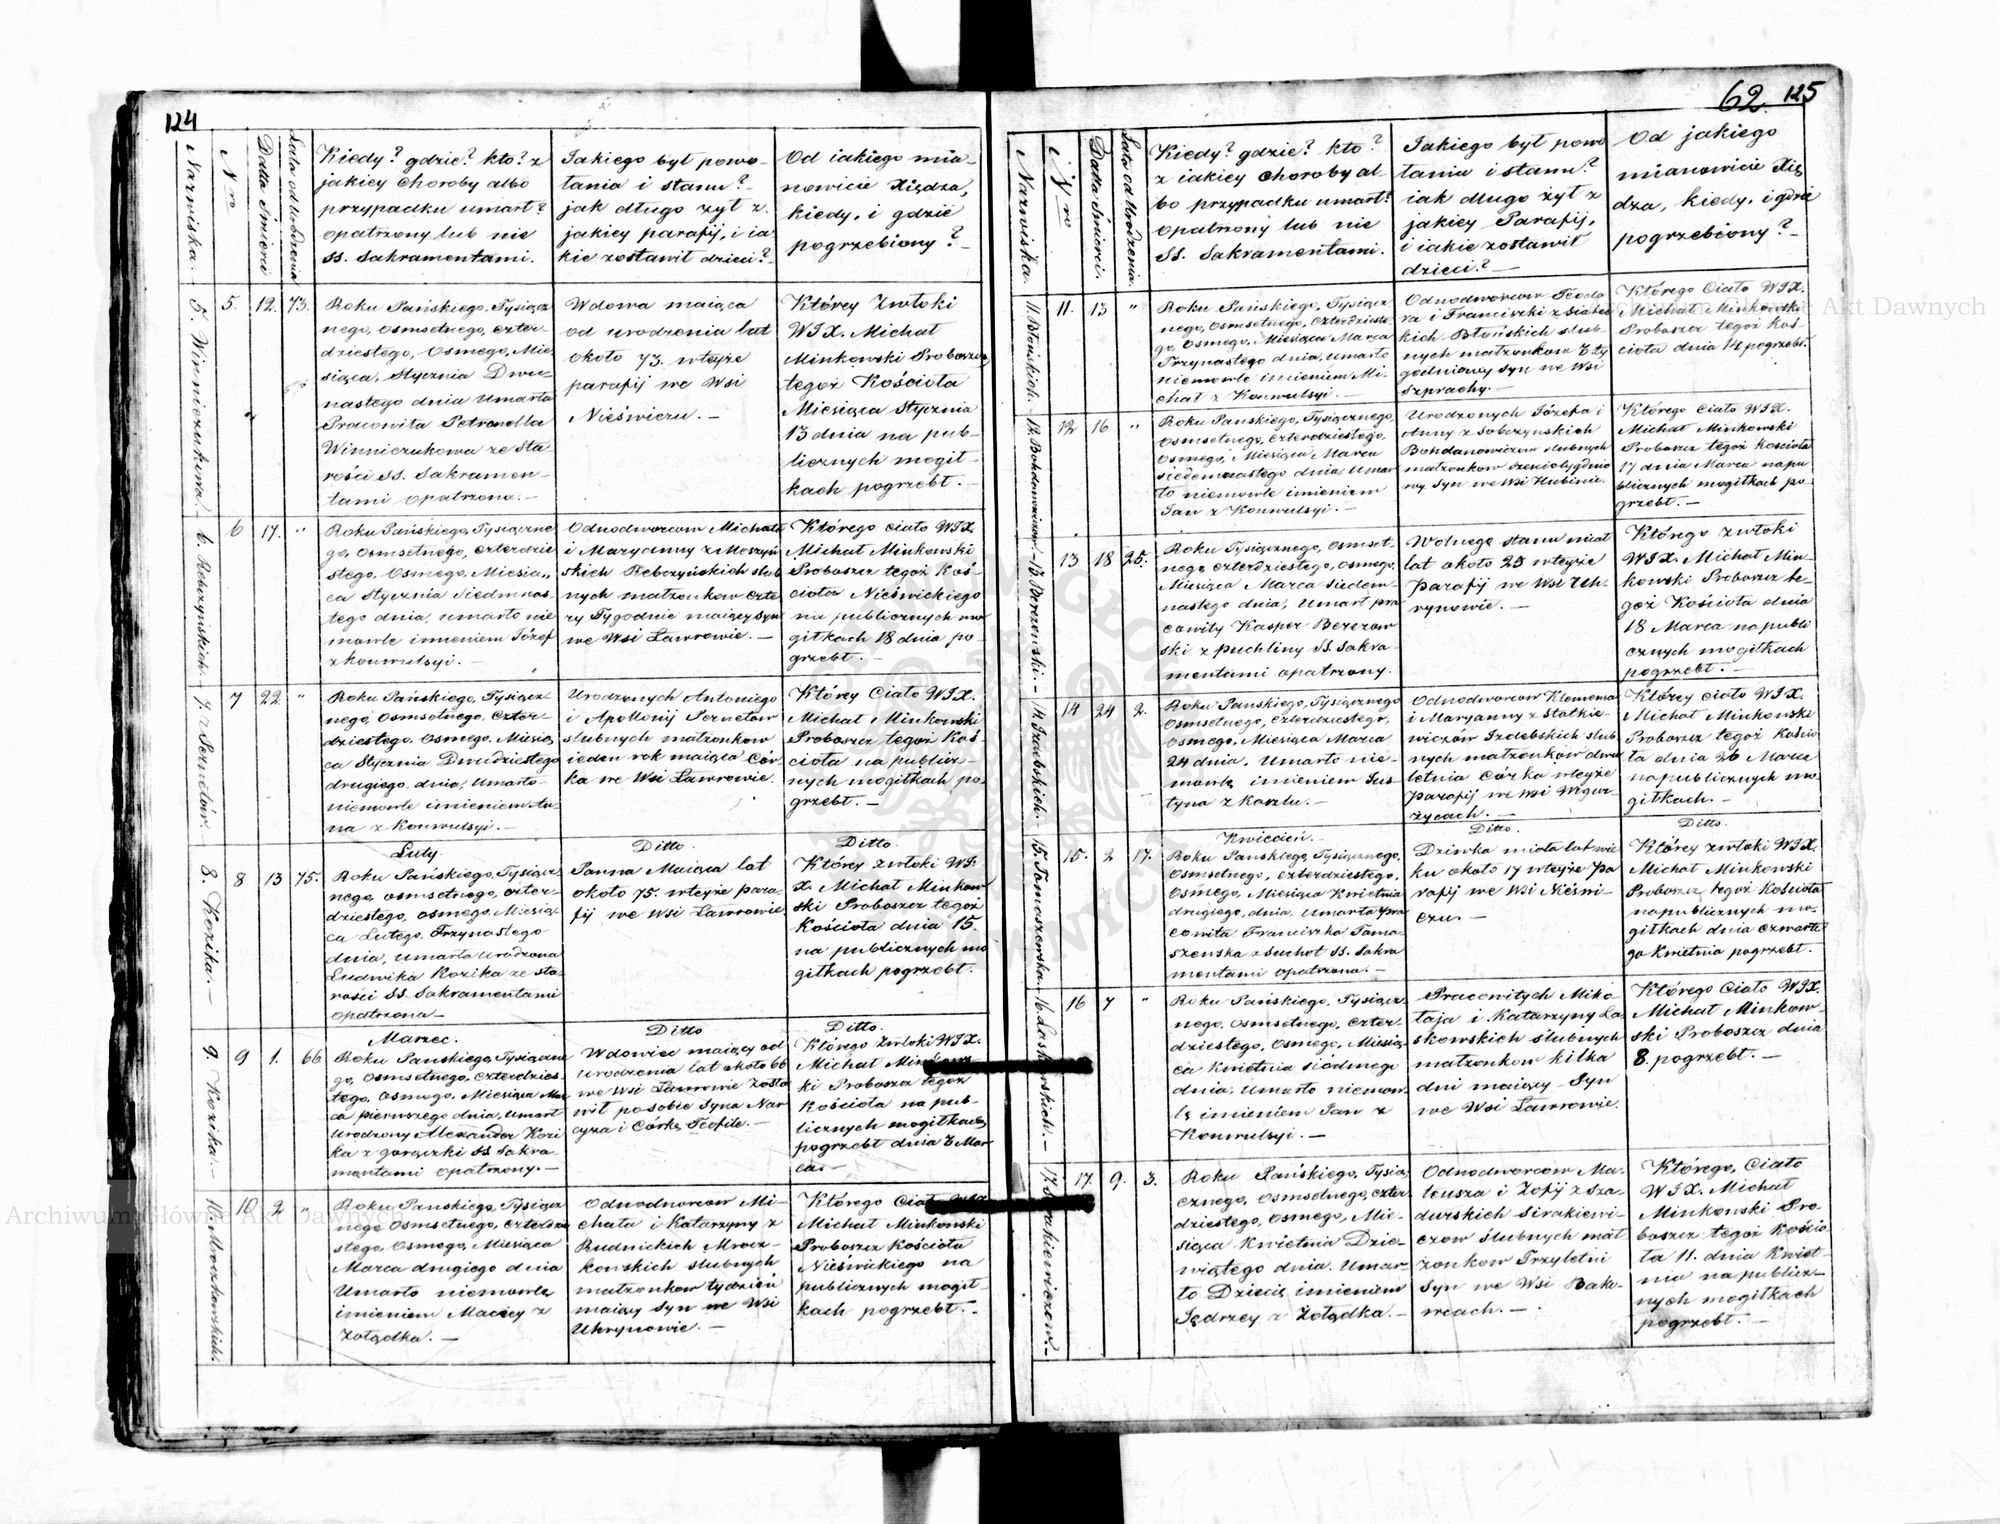 124
Nazwiska.
Nro
Datta Śmierci
Lata od Urodzenia
Kiedy? gdzie? kto? z
jakiey choroby albo
przypadku umarł?
opatrzony lub nie
SS. Sakramentami.
Jakiego był powo-
łania i stanu?-
jak długo żył z
jakiey parafij, i ia
kie zostawił dzieci?-
Od iakiego mia-
nowicie Xiędza,
kiedy, i gdzie
pogrzebiony?-
5. Winniczukowa.
5. 12. 73.
Roku Pańskiego, Tysiącz
nego, Osmsetnego, czter-
dziestego, Osmego, Mie-
siąca, Stycznia Dwu-
nastego dnia Umarła
Pracowita Petronella
Winniczukowa ze Sta
rości SS. Sakramen-
tami opatrzona.-
Wdowa maiąca
od urodzenia lat
około 73. wteyże
parafij we Wsi
Nieświezu.-
Którey Zwłoki
WJX. Michał
Minkowski Proboszcz
tegoż Kościoła
Miesiąca Stycznia
13 dnia na pub-
licznych mogił-
kach pogrzebł.-
6. Rebczyńskich.
6 17. "
Roku Pańskiego, Tysiączne
go, Osmsetnego, czterdzie
stego, Osmego, Miesią„
ca Stycznia Siedmnas-
tego dnia, umarło nie
mowle imieniem Józef
z konwulsyi.-
Odnodworcow Michała
i Maryanny z Moszyń
skich Rebczyńskich ślub
nych małżonkow czte
ry Tygodnie maiący syn
we Wsi Ławrowie.-
Którego ciało WJX.
Michał Minkowski
Proboszcz tegoż Koś-
cioła Nieświckiego
na publicznych mo
giłkach 18 dnia po-
grzebł.-
7. Pernetów
7 22. "
Roku Pańskiego, Tysiącz-
nego, Osmsetnego, czter-
dziestego, Osmego, Miesią
ca Stycznia Dwudziestego
drugiego, dnia, Umarło
niemowle imieniem An-
na z Konwulsyi.-
Urodzonych Antoniego
i Apollonij Pernetow
ślubnych małżonkow
ieden rok maiąca Cór-
ka we Wsi Ławrowie.
Którey Ciało WJX.
Michał Minkowski
Proboszcz tegoż Koś-
cioła na publicz-
nych mogiłkach po-
grzebł.-
8. Kozika.-
8 13 75.
Luty
Roku Pańskiego, Tysiącz
nego, osmsetnego, czter-
dziestego, osmego, Miesią-
ca Lutego, Trzynastego
dnia, umarła urodzona
Ludwika Kozika ze sta-
rości SS. Sakramentami
opatrzona-
Ditto.
Panna Maiąca lat
około 75. wteyże para-
fij we Wsi Ławrowie
Ditto.
Którey zwłoki WJ.
X. Michał Minkow
ski Proboszcz tegoż
Kościoła dnia 15.
na publicznych mo
giłkach pogrzebł.
9. Kozika.-
9 1. 66
Marzec.
Roku Pańskiego, Tysiączne
go, Osmsetnego, czterdzies-
tego, Osmego, Miesiąca Mar
ca pierwszego dnia, Umarł
Urodzony Alexander Kozi
ka z gorączki SS Sakra
mentami opatrzony.-
Ditto
Wdowiec maiący od
urodzenia lat około 66
we Wsi Ławrowie zosta
wił po sobie Syna Nar
cyza i Córkę Teofile.-
Ditto.
Którego Zwłoki WJX.
Michał Minkows
ki Proboszcz tegoż
Kościoła na pub-
licznych mogiłkach
pogrzebł dnia 3 Mar
ca.-
10. Mroczkowskich.
10 2 "
Roku Pańskiego, Tysiącz
nego Osmsetnego, czterdzie
stego, Osmego, Miesiąca
Marca drugiego dnia
Umarło niemowle
imieniem Maciey z
żołądka.-
Odnodworcow Mi-
chała i Katarzyny z
Rudnickich Mrocz-
kowskich ślubnych
małżonkow tydzień
maiący Syn we Wsi
Uhrynowie.-
Którego Ciało WJX
Michał Minkowski
Proboszcz Kościoła
Nieświckiego na
publicznych mogił-
kach pogrzebł.-
62. 125
Nazwiska.
Nro
Datta Śmierci.
Lata od Urodzenia.
Kiedy? gdzie? kto?
z iakiey choroby al-
bo przypadku umarł?
opatrzony lub nie
SS. Sakramentami.
Jakiego był powo
łania i stanu?
iak długo żył z
jakiey Parafij,
i iakie zostawił
dzieci?-
Od jakiego
mianowicie Xię
dza, kiedy, i gdzie
pogrzebiony?-
11. Błońskich.
11. 13 "
Roku Pańskiego, Tysiącz
nego, Osmsetnego, Czterdzieste-
go, Osmego, Miesiąca Marca
Trzynastego dnia, Umarło
niemowle imieniem Mi-
chał z Konwulsyi.-
Odnodworcow Teodo
ra i Franciszki z
kich Błońskich ślub-
nych małżonkow 3 ty
godniowy syn we Wsi
Szprachy.-
Którego Ciało WJX.
Michał Minkowski
Proboszcz tegoż Koś-
cioła dnia 14 pogrzebł.
12. Bohdanowiczow.-
12 16 "
Roku Pańskiego, Tysiącznego,
Osmsetnego, czterdziestego,
Osmego, Miesiąca Marca
siedemnastego dnia Umar
ło niemowle imieniem
Jan z Konwulsyi.-
Urodzonych Józefa i
Anny z Sobczyńskich
Bohdanowiczow ślubnych
małżonkow sześciotygodnio
wy Syn we Wsi Hubinie.
Którego Ciało WJX.
Michał Minkowski
Proboszcz tegoż Kościoła
17 dnia Marca na pu
blicznych mogiłkach po-
grzebł.-
13. Berezowski.-
13 18 25.
Roku Tysiącznego, Osmset-
nego czterdziestego, Osmego,
Miesiąca Marca Siedem-
nastego dnia, Umarł pra
cowity Kasper Berezow
ski z puchliny SS. Sakra
mentami opatrzony.
Wolnego stanu miał
lat około 25 wteyże
Parafij we Wsi Uh-
rynowie.-
Którego zwłoki
WJX. Michał Min-
kowski Proboszcz te-
goż Kościoła dnia
18 Marca na publi
cznych mogiłkach
pogrzebł.-
14. Izdebskich.-
14 24 2.
Roku Pańskiego, Tysiącznego
Osmsetnego, Czterdziestego,
Osmego, Miesiąca Marca
24 dnia, Umarło nie-
mowlę imieniem Jus-
tyna z Kaszlu.-
Odnodworcow Klemensa
i Maryanny z Statkie-
wiczów Izdebskich ślub
nych małżonkow dwu
letnia Córka wteyże
Parafij we Wsi Wigur-
życach.-
Którey Ciało WJX.
Michał Minkowski
Proboszcz tegoż Kościo
ła dnia 26 Marca
na publicznych mo-
giłkach.-
15. Tomaszewska.
15. 2 17.
Kwiecień.-
Roku Pańskiego, Tysiącznego,
Osmsetnego, czterdziestego,
Osmego, Miesiąca Kwietnia
drugiego, dnia, Umarła Pra
cowita Franciszka Toma
szewska z Suchot SS. Sakra
mentami opatrzona.-
Ditto.
Dziewka miała lat wie
ku około 17 wteyże Pa
rafij we Wsi Nieświ-
czu.-
Ditto.
Którey zwłoki WJX.
Michał Minkowski
Proboszcz tegoż Kościoła
na publicznych mo-
giłkach dnia czwarte
go Kwietnia pogrzebł.
16 7 "
Roku Pańskiego, Tysiącz-
nego, Osmsetnego, czter-
dziestego, Osmego, Miesią-
ca Kwietnia siódmego
dnia, Umarło niemow-
lę imieniem Jan z
Konwulsyi.-
Pracowitych Miko
łaja i Katarzyny La
skowskich ślubnych
małżonkow kilka
dni maiący Syn
we Wsi Ławrowie.
Którego Ciało WJX.
Michał Minkow-
ski Proboszcz dnia
8. pogrzebł.-
17. Sirakiewiczow.-
17. 9. 3.
Roku Pańskiego, Tysią
cznego, Osmsetnego, czter
dziestego, Osmego, Mie-
siąca Kwietnia Dzie-
wiątego dnia, Umar-
ło Dziecię imieniem
Jędrzey z żołądka.-
Odnodworcow Ma-
teusza i Zofij z Sza-
durskich Sirakiewi-
czow ślubnych mał
żonkow Trzyletni
Syn we Wsi Bako-
wcach.-
Którego, Ciało
WJX. Michał
Minkowski Pro-
boszcz tegoż Kościo
ła 11. dnia Kwiet-
nia na publicz-
nych mogiłkach
pogrzebł.-
Archiwum Główne Akt Dawnych
Archiwum Główne Akt Dawnych